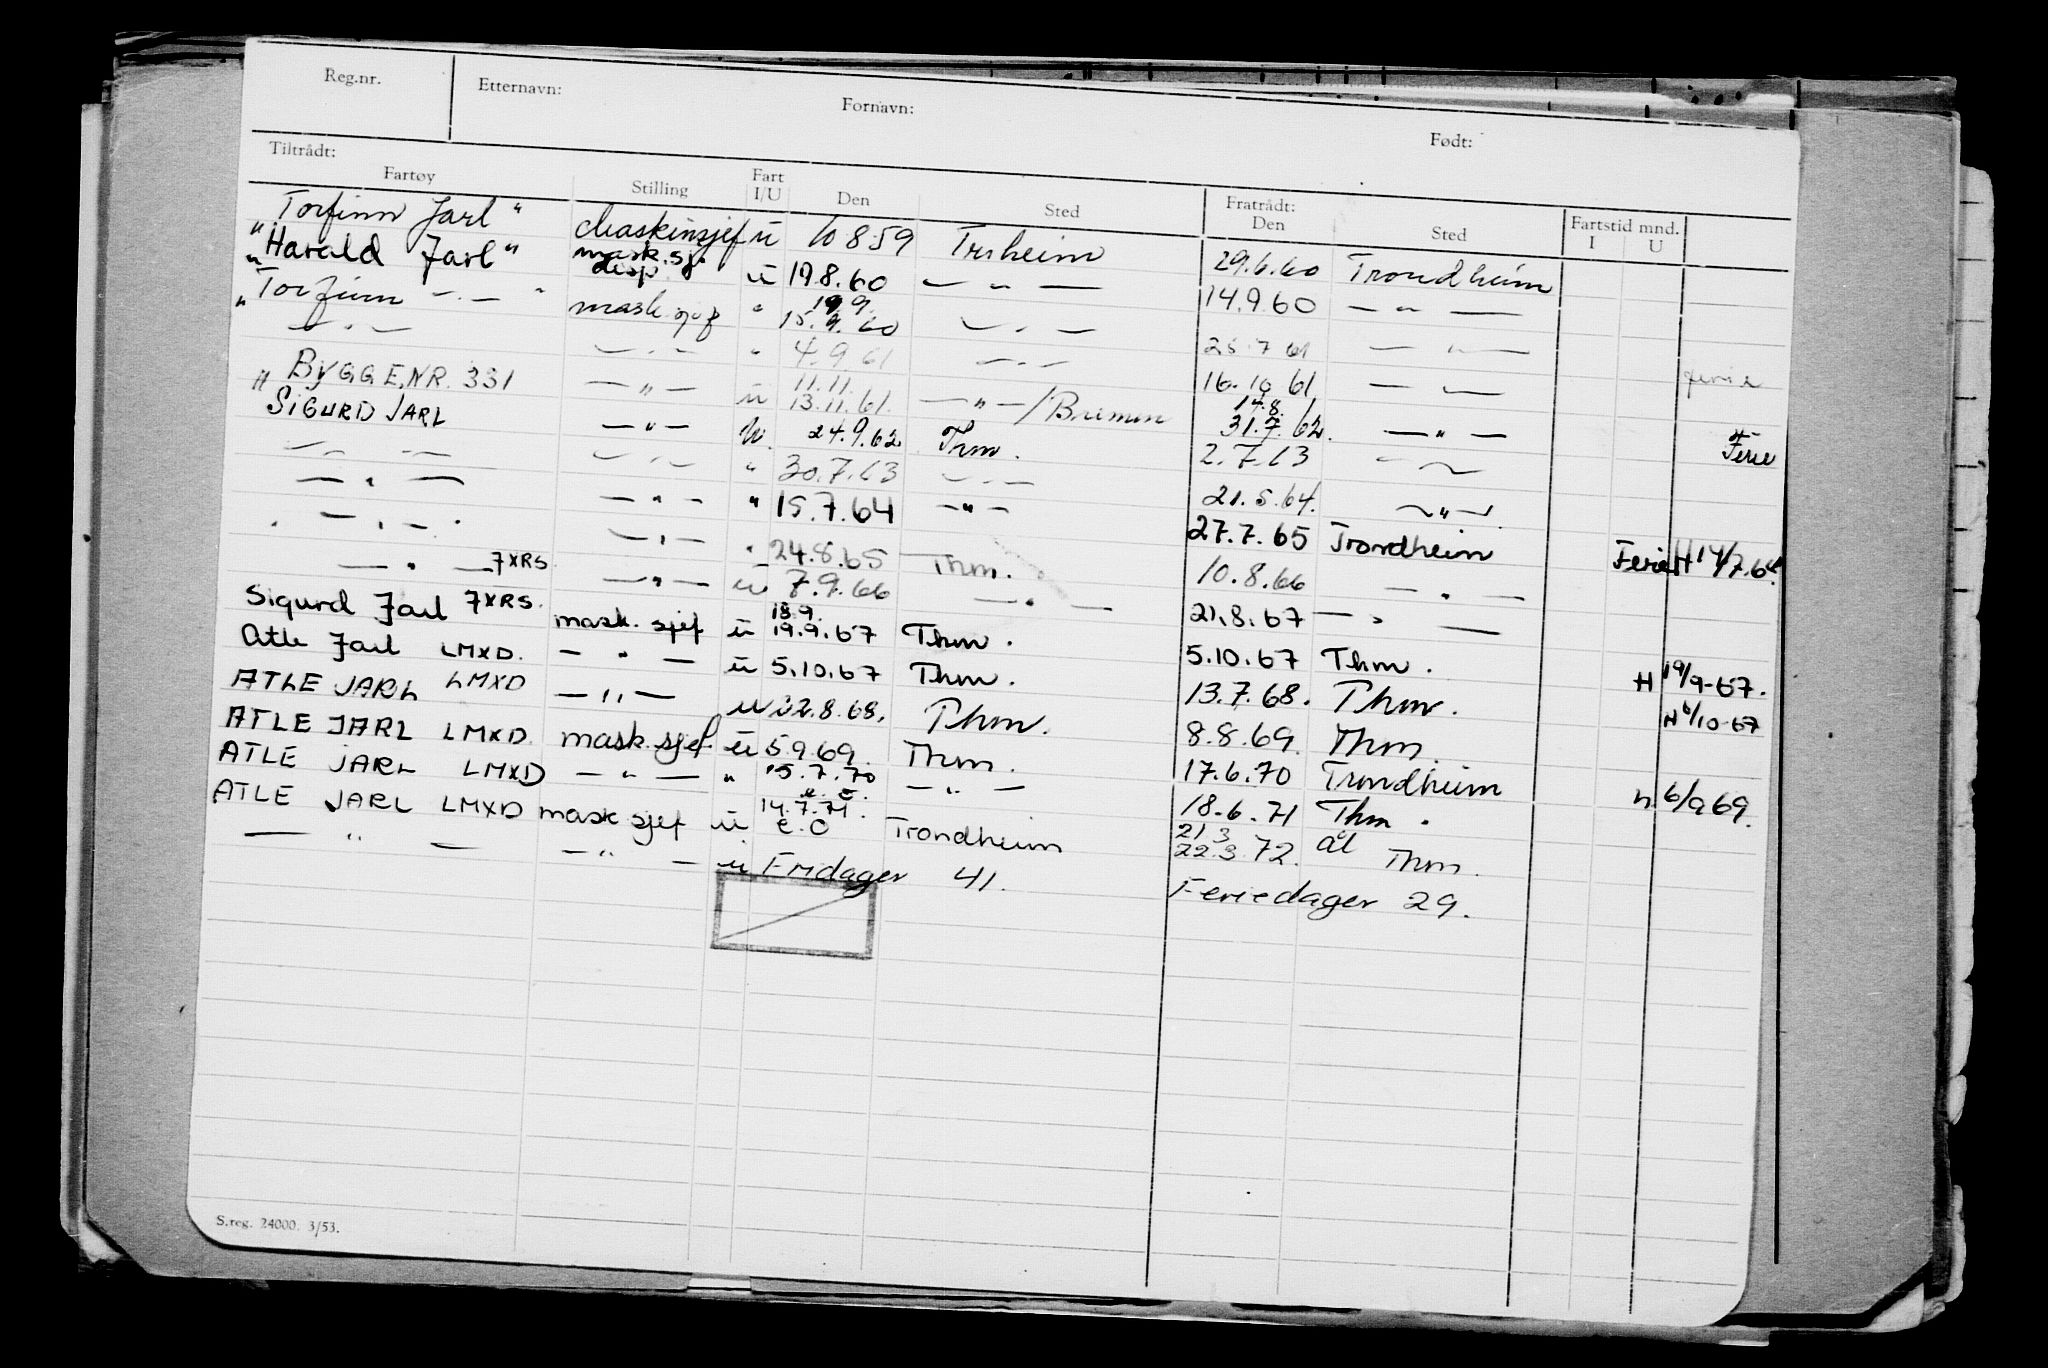 Reg.nr. Etternavn: Fornavn: Født:
Tiltrådt: Fratrådt:
Fartøy Stilling Fart I/U Den Sted Den Sted Fartstid mnd. I U
"Torfinn Jarl" Maskinsjef u 10 8 59 Tr.heim 29.6.60 Trondheim
"Harald Jarl" mask.sj. disp u 19.8.60 — " — 14.9.60 — " —
"Torfinn — " — " mask.sjef " 19 9. 15.9.60 — " — 25 7 61 — " —
" — " — — " — " 4.9.61 — " — 16.10 61 — " — ferie
" BYGGE.NR. 331 — " — u 11.11. 13.11.61. — " — / Bremen 14.8. 31.7.62. — " —
SIGURD JARL — " — u. 24.9.62 Thm. 2.7.63 — " — Ferie
— " — — " — " 30.7.63 — " — 21.5.64. — " —
— " — — " — " 15.7.64 — " — 27.7.65 Trondheim Ferie H 14/7.64.
— " — — " — " 24.8.65 Thm. 10.8.66 — " —
— " — 7XRS — " — u 7.9.66 — " — 21.8.67 — " —
Sigurd Jarl 7XRS. mask. sjef u 18.9. 19.9.67 Thm. 5.10.67 Thm. H 19/9-67.
Atle Jarl LMXD. — " — u 5.10.67 Thm. 13.7.68. Thm. H 6/10-67
ATLE JARL LMXD — " — u 12.8.68. Thm. 8.8.69. Thm.
ATLE JARL LMXD. mask.sjef u 5.9.69. Thm. 17.6.70 Trondheim H 6/9 69.
ATLE JARL LMXD — " — " 15.7.70 — " — 18.6.71 Thm.
ATLE JARL LMXD mask sjef u 14.7.71. e.o Trondheim 21 3 22.3.72. Thm.
— " — — " — u Fridager 41. Feriedager 29.
S.reg. 24000. 3/53.